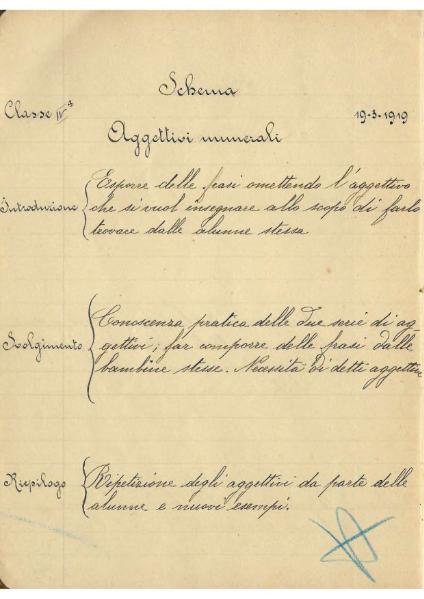 Schema
Classe IVª
19-3-1919
Aggettivi numerali
Introduzione
Esporre delle frasi omettendo l'aggettivo
che si vuol insegnare allo scopo di farlo
trovare dalle alunne stesse
Svolgimento
Conoscenza pratica delle due serie di ag-
gettivi; far comporre delle frasi dalle
bambine stesse. Necessità di detti aggettivi
Riepilogo
Ripetizione degli aggettivi da parte delle
alunne e nuovi esempi.